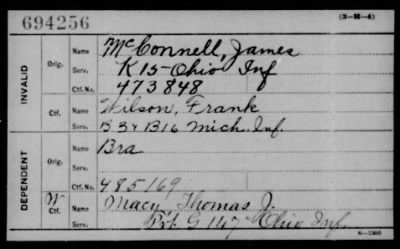 694256
(3-M-4)
INVALID
Orig. Name McConnell, James
Serv. K 15 - Ohio Inf
Ctf. No. 473848
Ctf. Name Wilson, Frank
Serv. B 3 & B 16 Mich. Inf.
DEPENDENT
Orig. Name Bra
Serv.
Ctf. No. 485169
W Ctf. Name Macy Thomas J.
Serv. Pvt G 147" Ohio Inf.